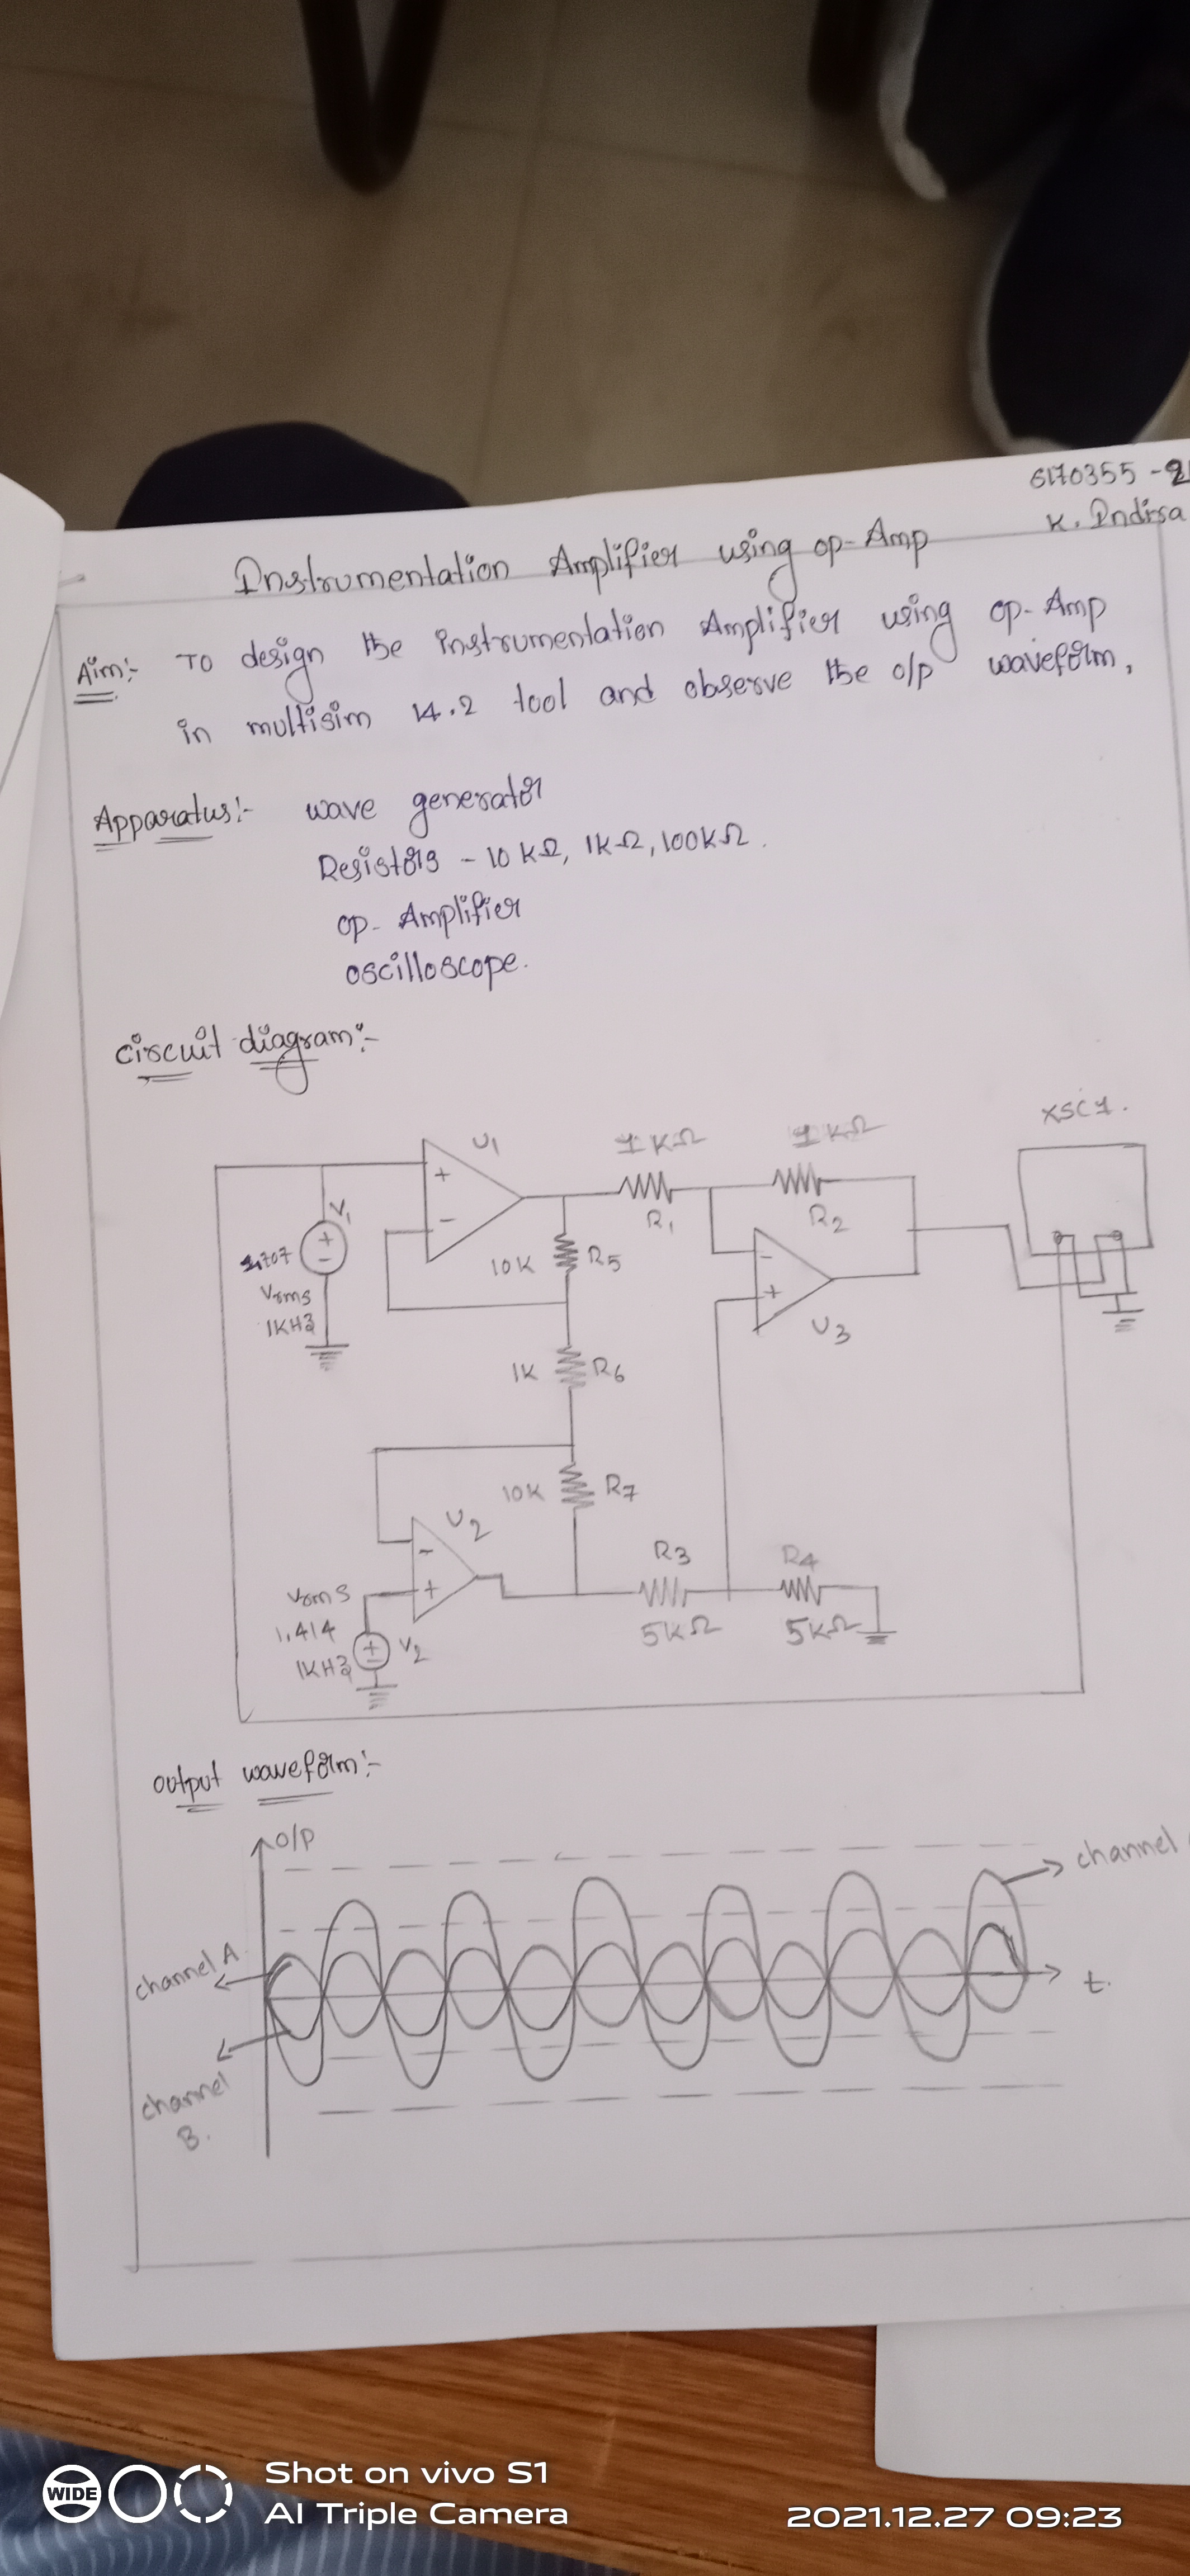 6170355 -2
K. Indira
Instrumentation Amplifier using op-Amp
Aim:- To design the instrumentation Amplifier using op-Amp
in multisim 14.2 tool and observe the o/p waveform.
Apparatus:- wave generator
Resistors - 10 KΩ, 1KΩ, 100KΩ.
op- Amplifier
oscilloscope.
circuit diagram:-
XSC1.
U1
1 KΩ
1 KΩ
+
-
V1
R1
R2
+
-
707
Vrms
1KHz
10K
R5
-
+
U3
1K
R6
10K
R7
U2
-
+
R3
R4
Vrms
1.414
1KHz
+
-
V2
5KΩ
5KΩ
output waveform:-
o/p
channel
channel A
t.
channel
B.
WIDE
Shot on vivo S1
AI Triple Camera
2021.12.27 09:23